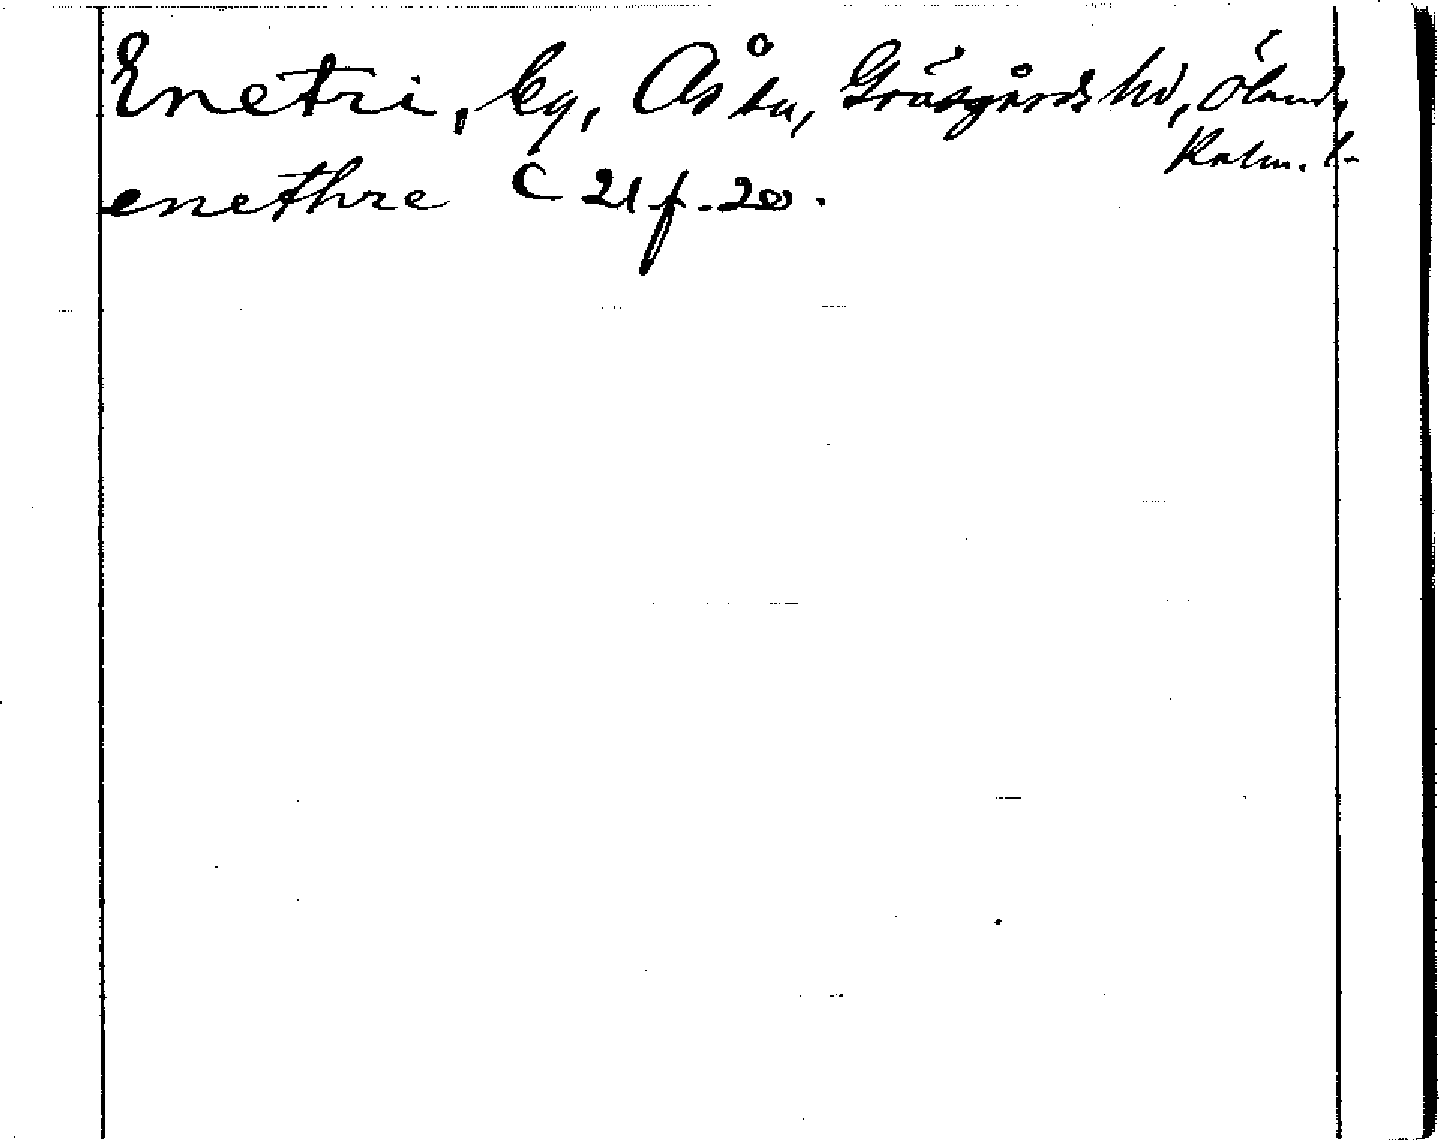 Enetri, by, Ås sn, Gräsgårds hd, Öland,
Kalm. l.
enethre C 21 f. 20.